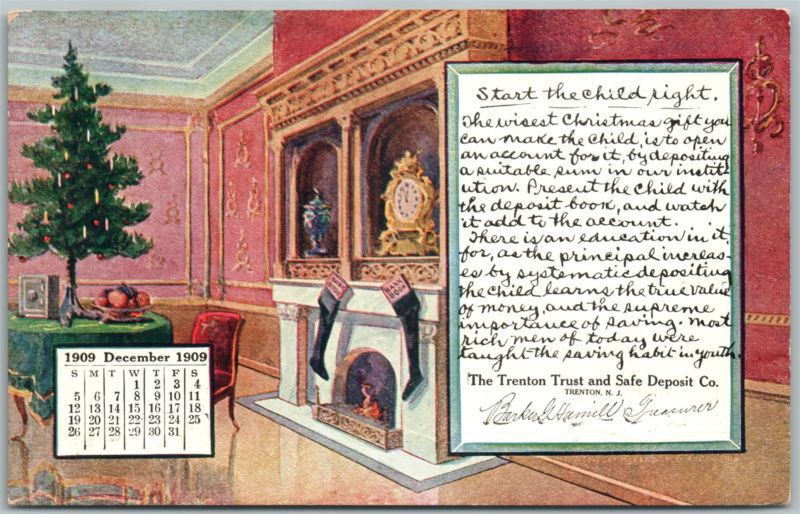 Start the child right.
The wisest Christmas gift you
can make the child, is to open
an account for it, by depositing
a suitable sum in our instit
ution. Present the child with
the deposit book, and watch
it add to the account.
There is an education in it,
for, as the principal increas-
es by systematic depositing
the child learns the true value
of money, and the supreme
importance of saving. Most
rich men of today were
taught the saving habit in youth.
The Trenton Trust and Safe Deposit Co.
TRENTON, N. J.
Barker G. Hamill Treasurer
BANK BOOK
BANK BOOK
1909 December 1909
S M T W T F S
1 2 3 4
5 6 7 8 9 10 11
12 13 14 15 16 17 18
19 20 21 22 23 24 25
26 27 28 29 30 31